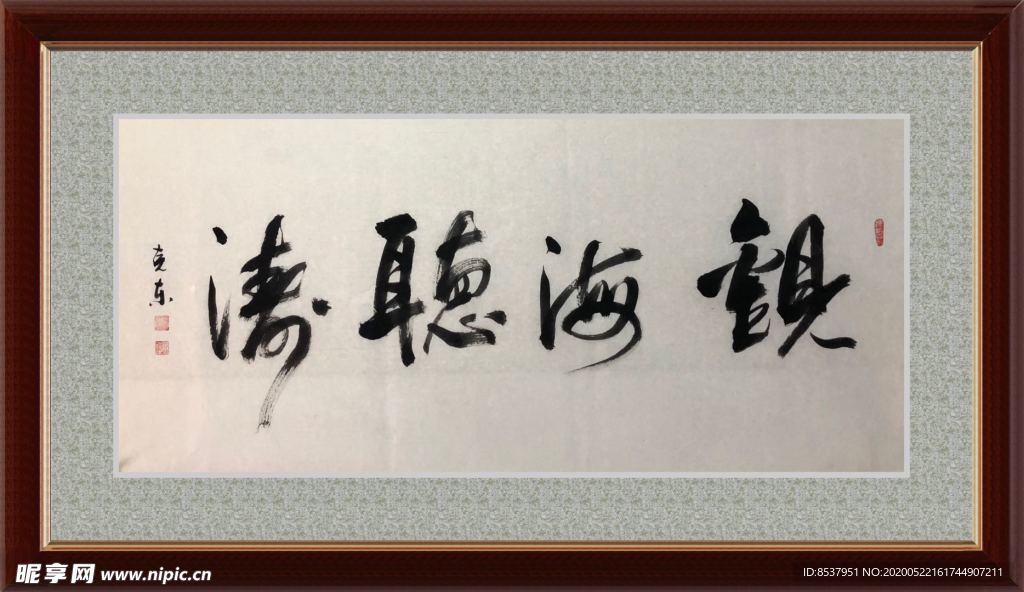 觀海聽濤
克东
昵享网 www.nipic.cn
ID:8537951 NO:20200522161744907211